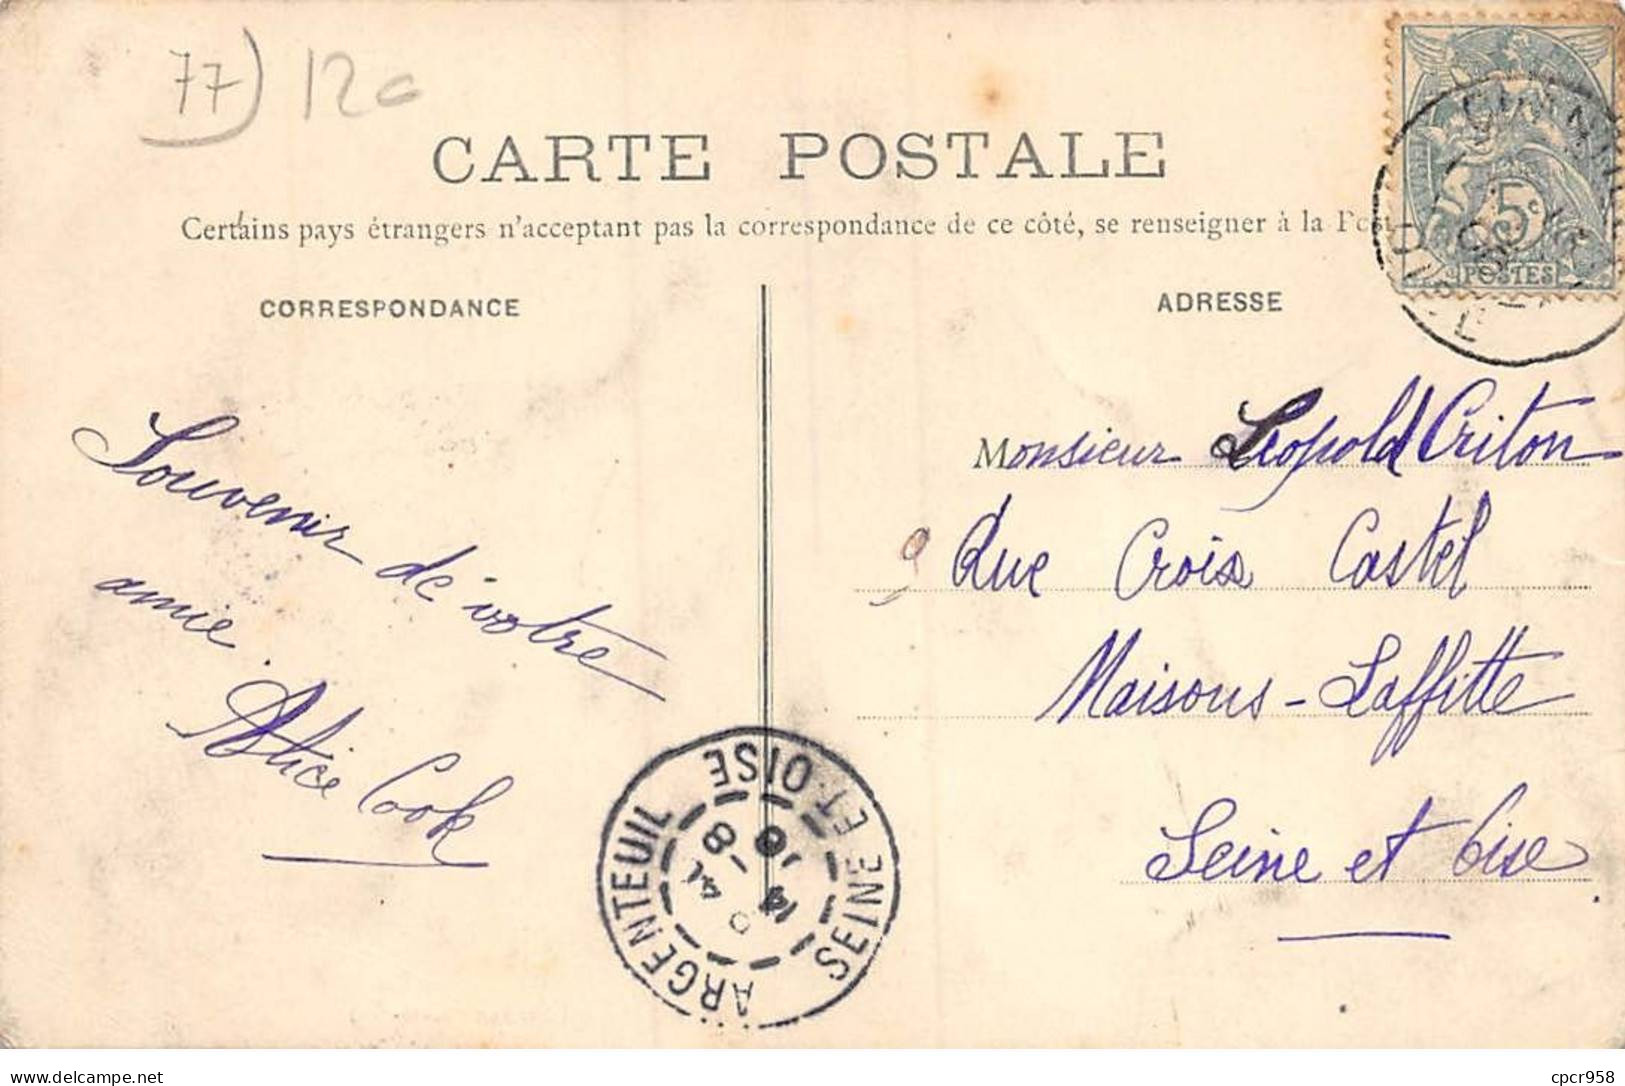 77) 12c
CARTE POSTALE
Certains pays étrangers n'acceptant pas la correspondance de ce côté, se renseigner à la Post
CORRESPONDANCE
ADRESSE
5c
POSTES
OISE
Souvenir de votre
amie.
Alice Cook
Monsieur Leopold Criton
9 Rue Crois Castel
Maisons-Laffitte
Seine et Oise
ARGENTEUIL SEINE ET-OISE
14 -8
06
delcampe.net
cpcr958